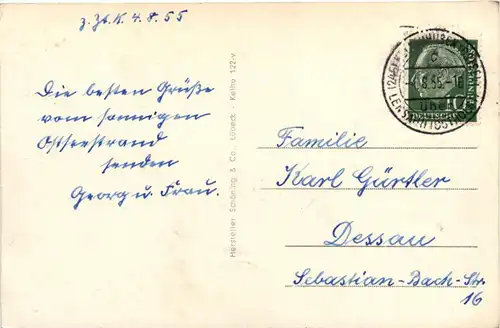 z. Zt. K. 4.8.55
Die besten Grüße
vom sonnigen
Ostseestrand
senden
Georg u. Frau.
Hersteller Schöning & Co., Lübeck · Keltho 122-v.
Familie
Karl Gürtler
Dessau
Sebastian-Bach-Str.
16
10
DEUTSCHE